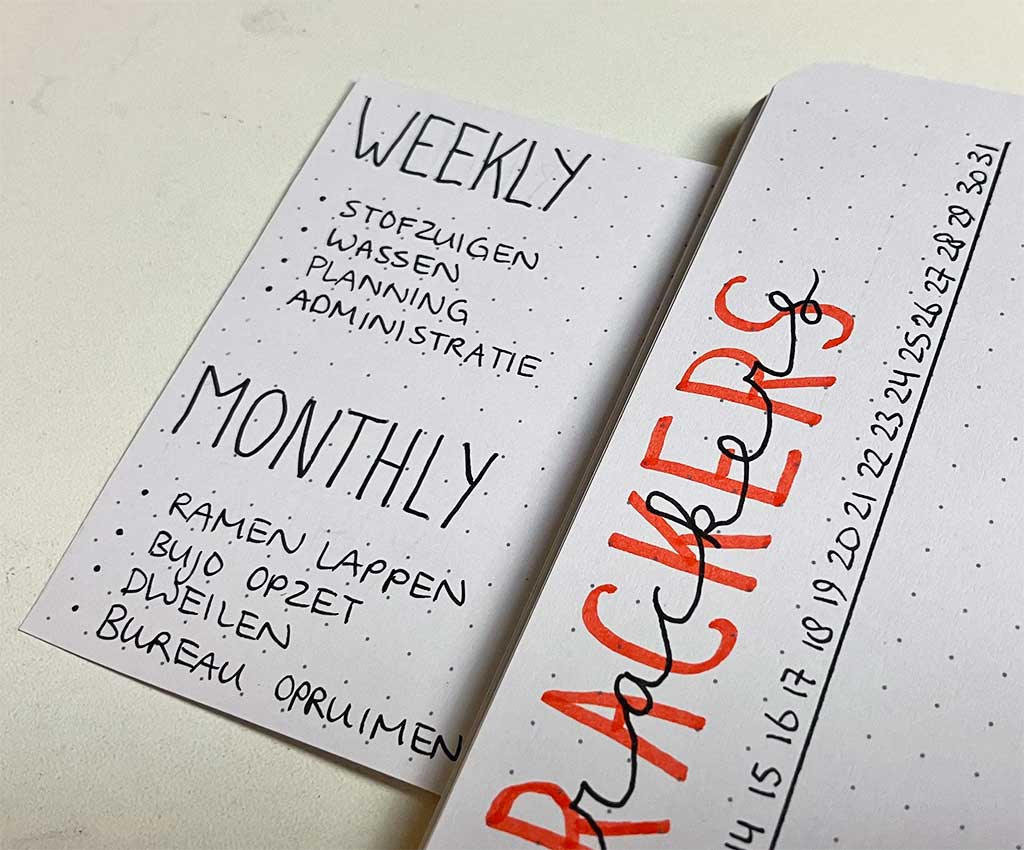 WEEKLY
• STOFZUIGEN
• WASSEN
• PLANNING
• ADMINISTRATIE
MONTHLY
• RAMEN LAPPEN
• BUJO OPZET
• DWEILEN
• BUREAU OPRUIMEN
RACKERS
rackers
14 15 16 17 18 19 20 21 22 23 24 25 26 27 28 29 30 31